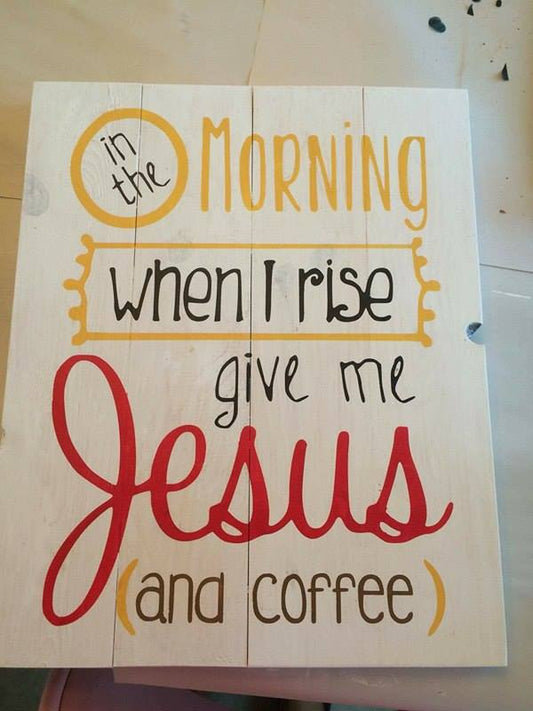 in
the
MORNING
when I rise
give me
Jesus
(and coffee)